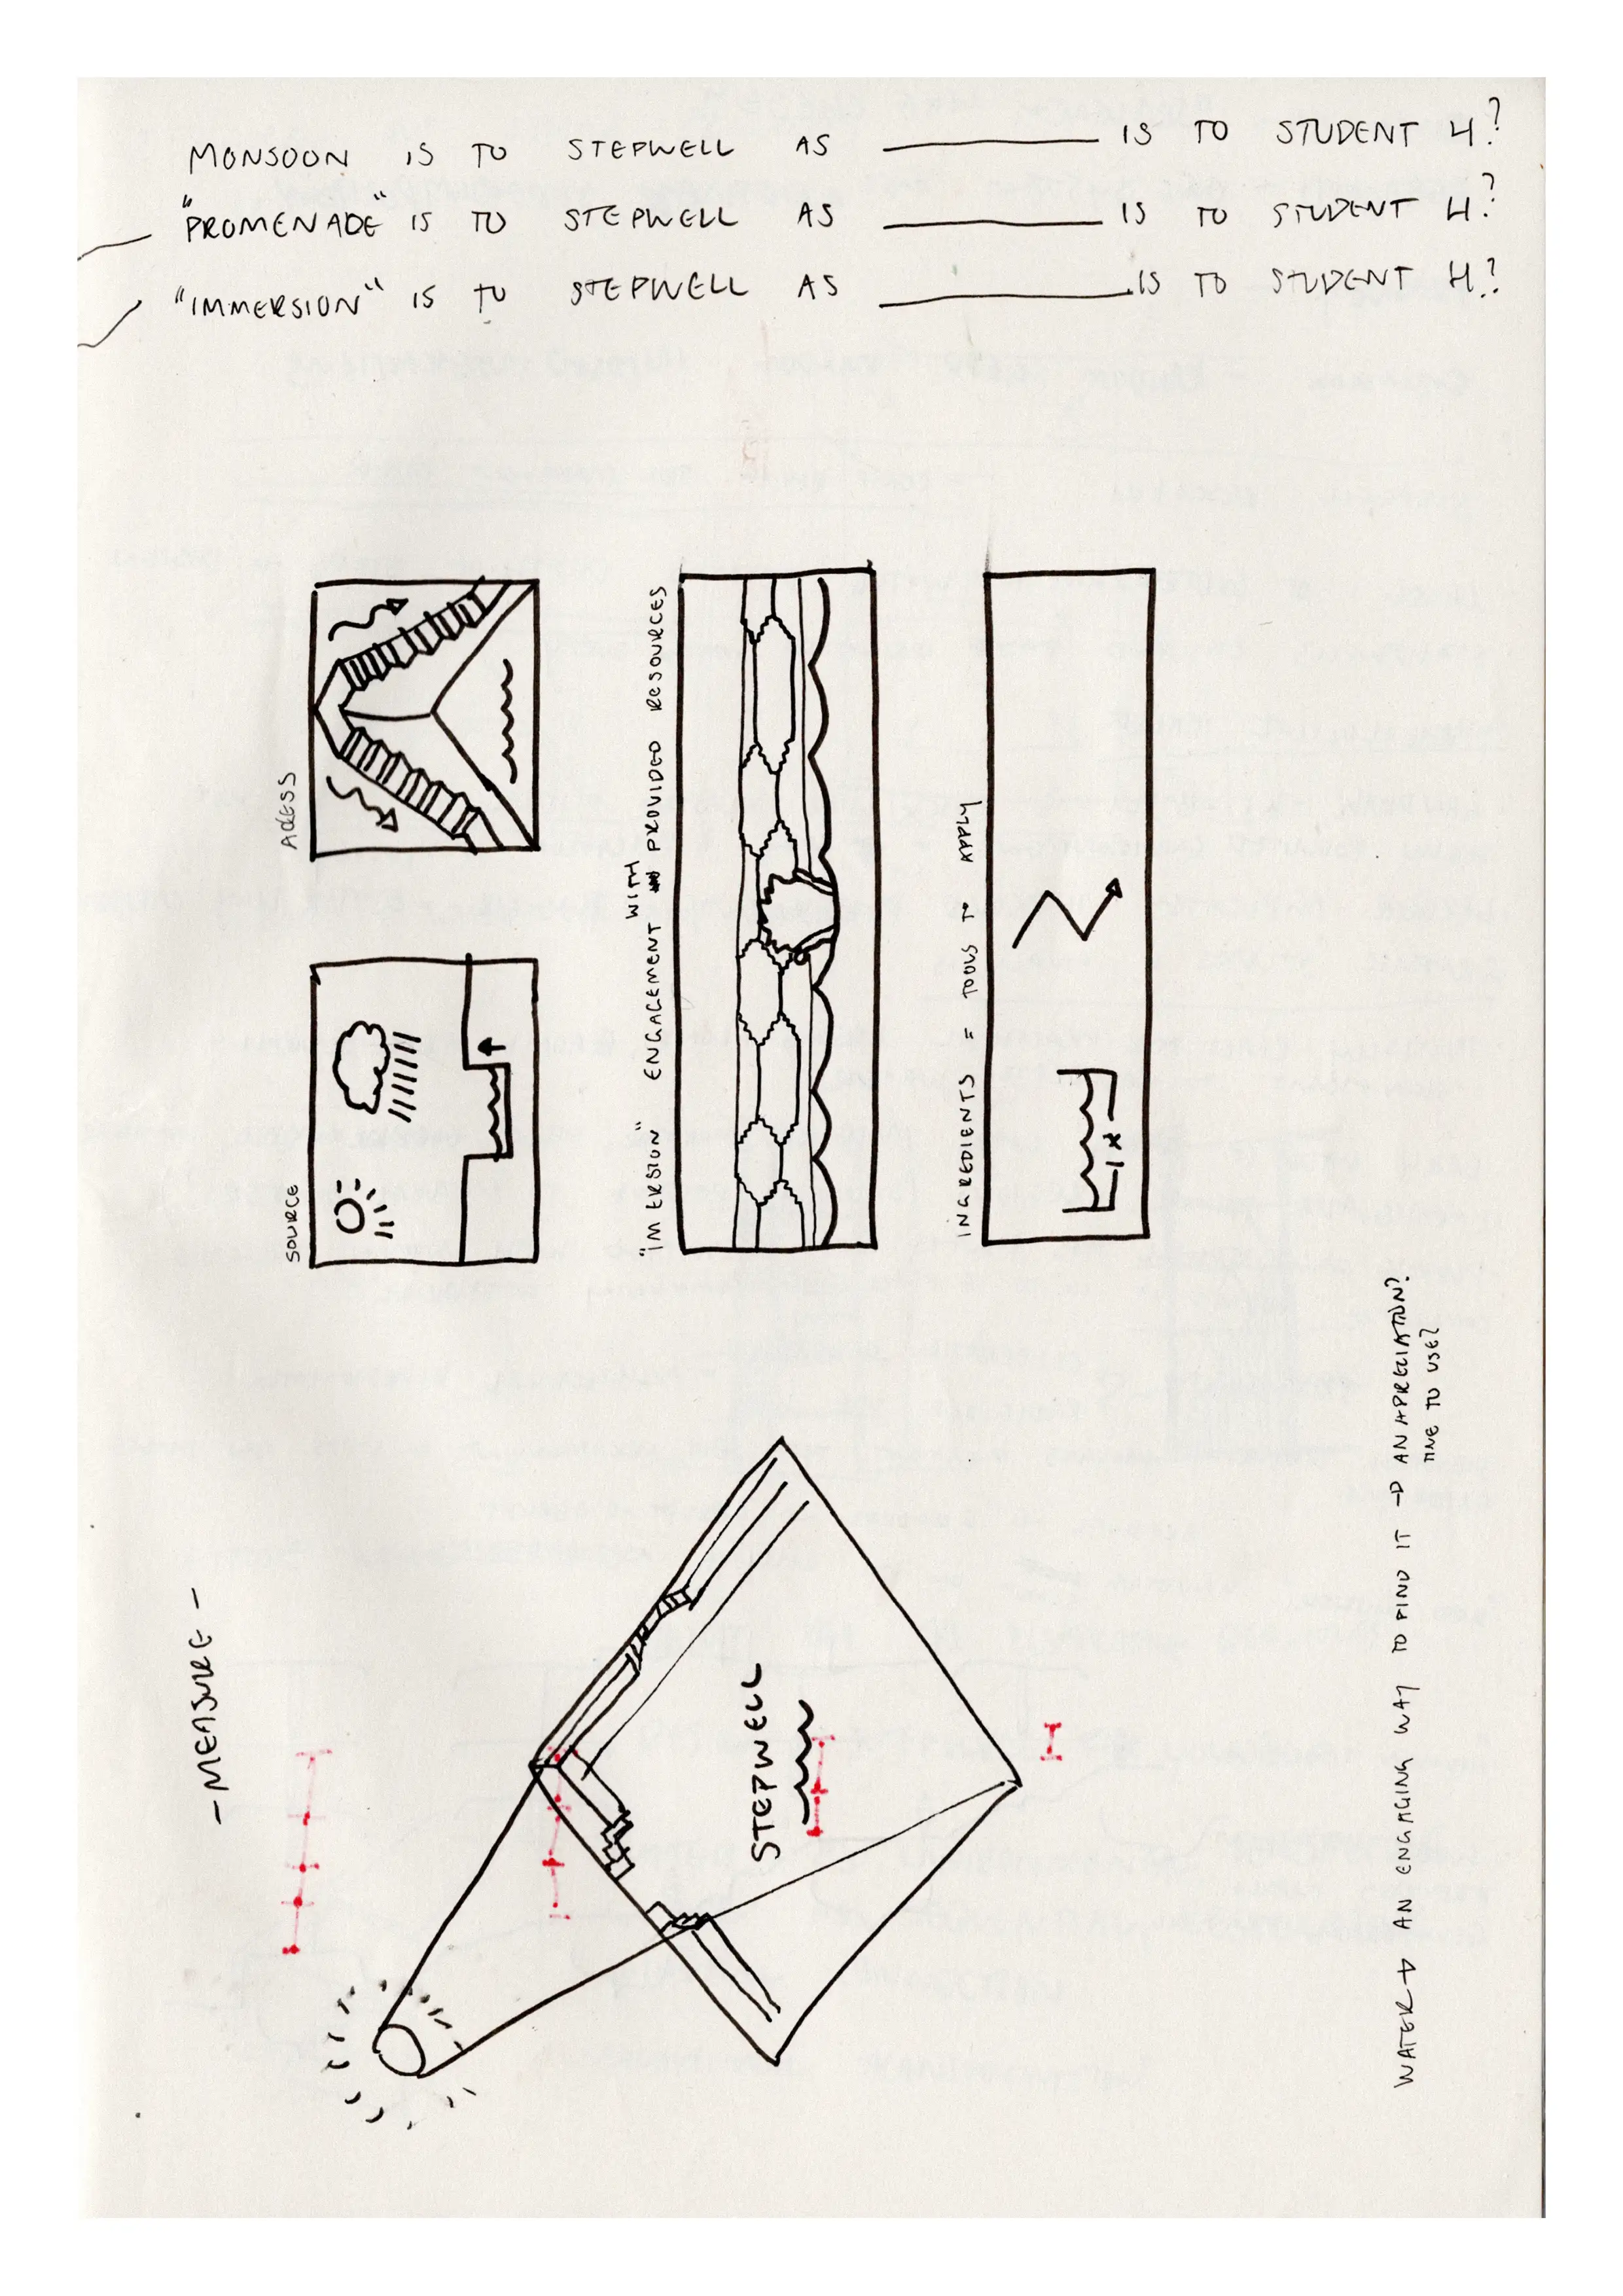 MONSOON IS TO STEPWELL AS ________ IS TO STUDENT 4?
"PROMENADE" IS TO STEPWELL AS ________ IS TO STUDENT 4?
"IMMERSION" IS TO STEPWELL AS ________ IS TO STUDENT 4?
SOURCE
ACCESS
"IMMERSION" ENGAGEMENT WITH PROVIDED RESOURCES
INGREDIENTS = TOOLS TO APPLY
- MEASURE -
STEPWELL
WATER → AN ENGAGING WAY TO FIND IT → AN APRECIATION?
TIME TO USE?